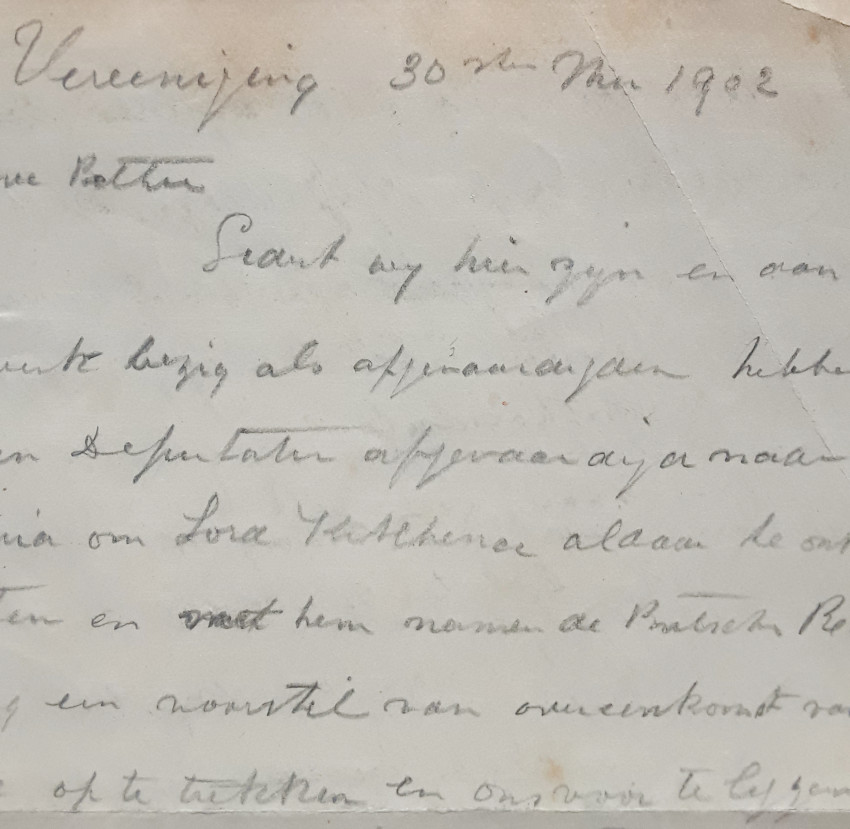 Vereeniging 30sten Mei 1902
Sedert wij hier zijn en aan
bezig als afgevaardigden hebbe
en Deputatie afgevaardigd naar
om Lord Kitchener aldaar te ont
en met hem namens de Britsche Re
een voorstel van overeenkomst van
op te trekken en ons voor te leggen